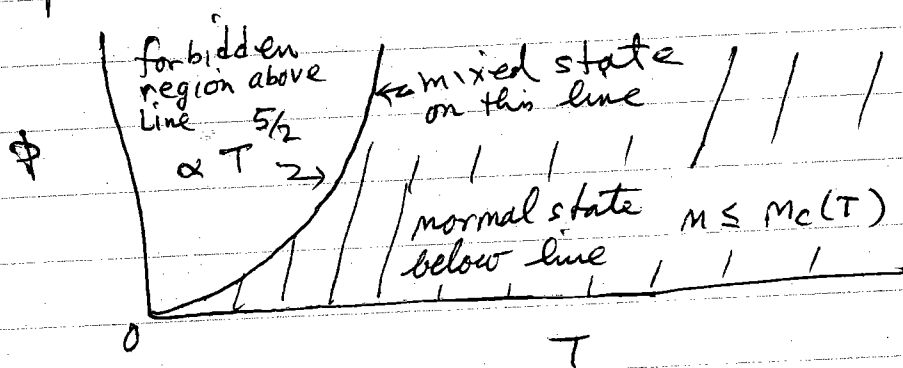 forbidden
region above
Line
∝ T^5/2
mixed state
on this line
p
normal state n ≤ n_c(T)
below line
0
T